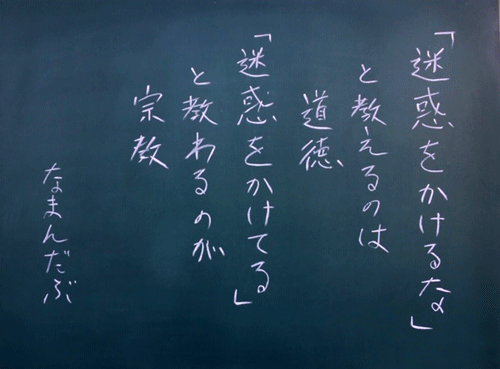 「迷惑をかけるな」
と教えるのは
道徳
「迷惑をかけてる」
と教わるのが
宗教
なまんだぶ